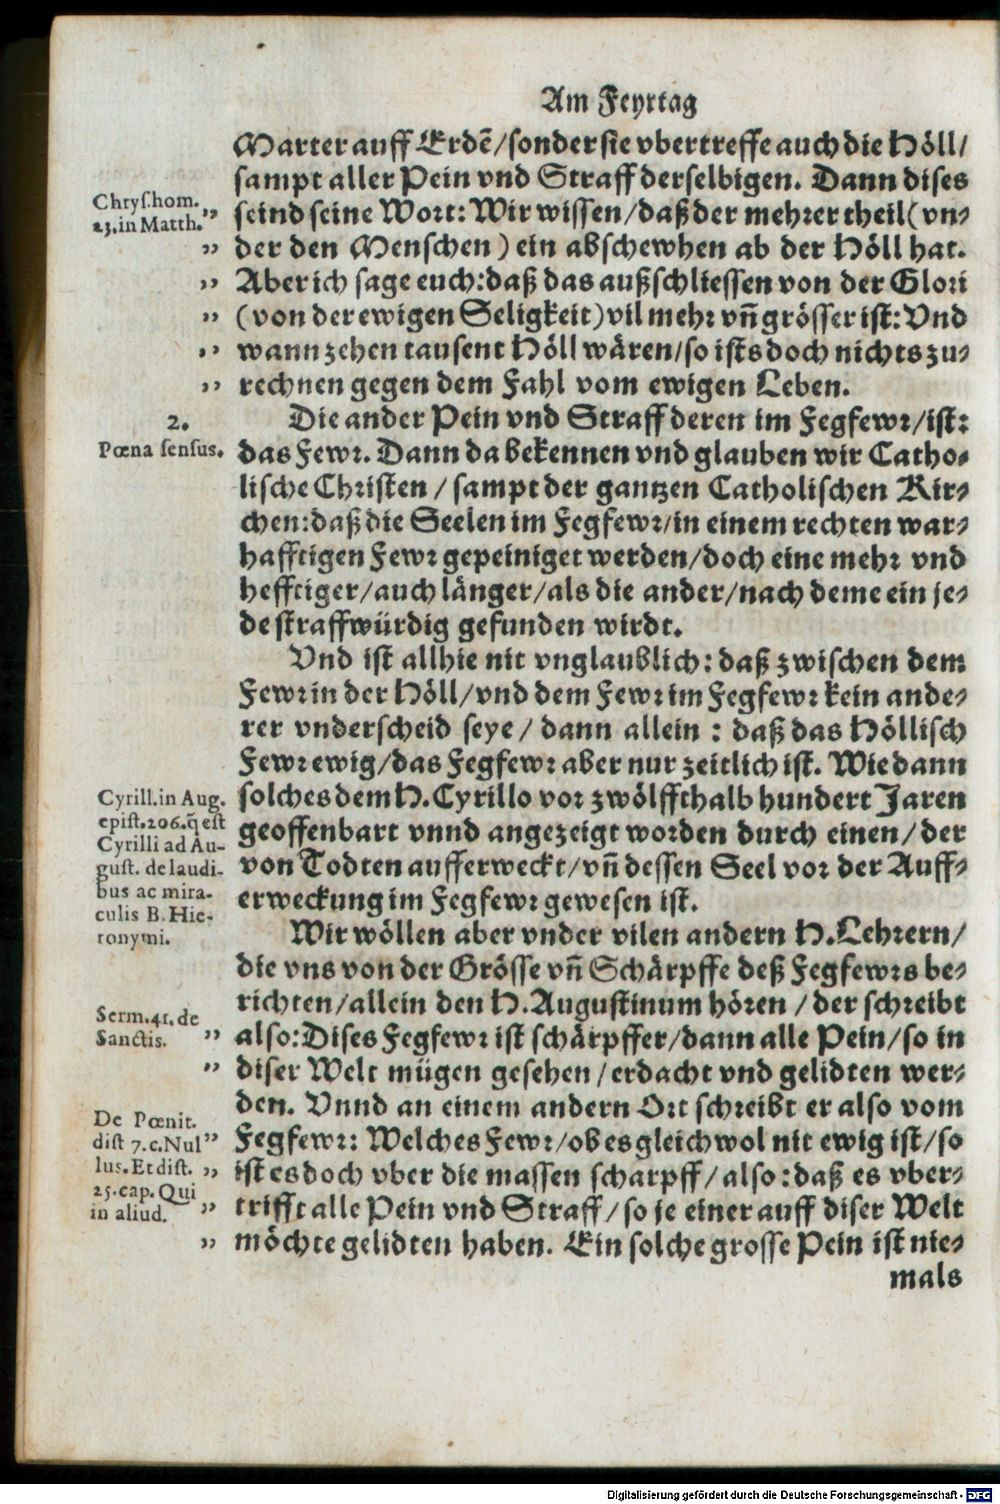 Am Feyrtag
Marter auff Erdẽ/sonder sie vbertreffe auch die Höll/
sampt aller Pein vnd Straff derselbigen. Dann dises
Chrys. hom.
23. in Matth.
seind seine Wort: Wir wissen/daß der mehrer theil (vn-
der den Menschen) ein abschewhen ab der Höll hat.
Aber ich sage euch: daß das außschliessen von der Glori
(von der ewigen Seligkeit) vil mehr vñ grösser ist: Vnd
wann zehen tausent Höll wären/so ists doch nichts zu-
rechnen gegen dem Fahl vom ewigen Leben.
2.
Pœna sensus.
Die ander Pein vnd Straff deren im Fegfewr/ist:
das Fewr. Dann da bekennen vnd glauben wir Catho-
lische Christen / sampt der gantzen Catholischen Kir-
chen: daß die Seelen im Fegfewr/in einem rechten war-
hafftigen Fewr gepeiniget werden/doch eine mehr vnd
hefftiger/auch länger/als die ander/nach deme ein je-
de straffwürdig gefunden wirdt.
Vnd ist allhie nit vnglaublich: daß zwischen dem
Fewr in der Höll/vnd dem Fewr im Fegfewr kein ande-
rer vnderscheid seye / dann allein : daß das Höllisch
Fewr ewig/das Fegfewr aber nur zeitlich ist. Wie dann
Cyrill. in Aug.
epist. 206. q̃ est
Cyrilli ad Au-
gust. de laudi-
bus ac mira-
culis B. Hie-
ronymi.
solches dem H. Cyrillo vor zwölffthalb hundert Jaren
geoffenbart vnnd angezeigt worden durch einen/der
von Todten aufferweckt/vñ dessen Seel vor der Auff-
erweckung im Fegfewr gewesen ist.
Wir wöllen aber vnder vilen andern H. Lehrern/
die vns von der Grösse vñ Schärpffe deß Fegfewrs be-
richten/allein den H. Augustinum hören / der schreibt
Serm. 41. de
Sanctis.
also: Dises Fegfewr ist schärpffer/dann alle Pein/so in
diser Welt mügen gesehen/erdacht vnd gelidten wer-
den. Vnnd an einem andern Ort schreibt er also vom
De Pœnit.
dist 7. c. Nul
lus. Et dist.
25. cap. Qui
in aliud.
Fegfewr: Welches Fewr/ob es gleichwol nit ewig ist/so
ist es doch vber die massen scharpff/also: daß es vber-
trifft alle Pein vnd Straff/so je einer auff diser Welt
möchte gelidten haben. Ein solche grosse Pein ist nie-
mals
Digitalisierung gefördert durch die Deutsche Forschungsgemeinschaft - DFG